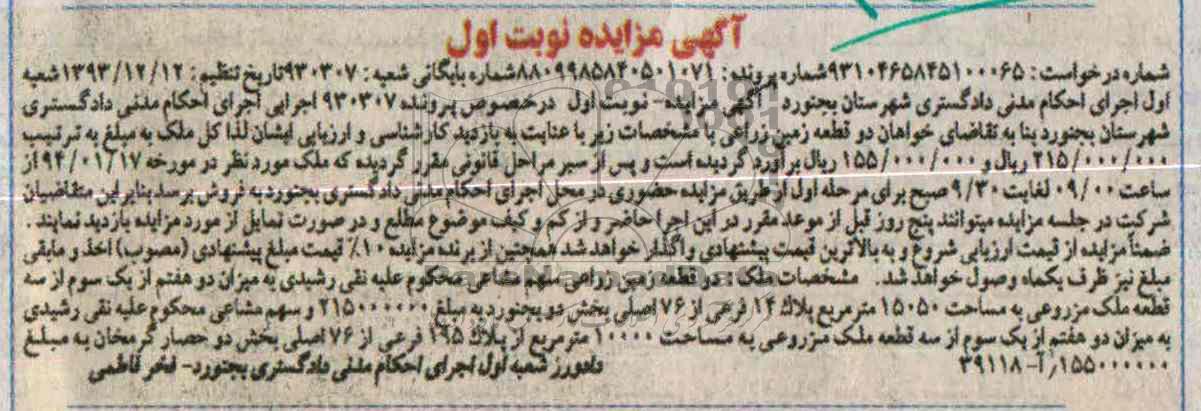 آگهی مزایده نوبت اول
شماره درخواست: ۹۳۱۰۴۶۵۸۴۵۱۰۰۰۶۵ شماره پرونده: ۸۸۰۹۹۸۵۸۴۰۵۰۱۰۷۱ شماره بایگانی شعبه: ۹۳۰۳۰۷ تاریخ تنظیم: ۱۳۹۳/۱۲/۱۲ شعبه
اول اجرای احکام مدنی دادگستری شهرستان بجنورد آگهی مزایده- نوبت اول درخصوص پرونده ۹۳۰۳۰۷ اجرایی اجرای احکام مدنی دادگستری
شهرستان بجنورد بنا به تقاضای خواهان دو قطعه زمین زراعی با مشخصات زیر با عنایت به بازدید کارشناسی و ارزیابی ایشان لذا کل ملک به مبلغ به ترتیب
۲۱۵/۰۰۰/۰۰۰ ریال و ۱۵۵/۰۰۰/۰۰۰ ریال برآورد گردیده است و پس از سیر مراحل قانونی مقرر گردیده که ملک مورد نظر در مورخه ۹۴/۰۱/۱۷ از
ساعت ۰۹/۰۰ لغایت ۹/۳۰ صبح برای مرحله اول از طریق مزایده حضوری در محل اجرای احکام مدنی دادگستری بجنورد به فروش برسد بنابراین متقاضیان
شرکت در جلسه مزایده میتوانند پنج روز قبل از موعد مقرر در این اجرا حاضر و از کم و کیف موضوع مطلع و در صورت تمایل از مورد مزایده بازدید نمایند.
ضمناً مزایده از قیمت ارزیابی شروع و به بالاترین قیمت پیشنهادی واگذار خواهد شد همچنین از برنده مزایده ۱۰٪ قیمت مبلغ پیشنهادی (مصوب) اخذ و مابقی
مبلغ نیز ظرف یکماه وصول خواهد شد. مشخصات ملک: دو قطعه زمین زراعی سهم مشاعی محکوم علیه نقی رشیدی به میزان دو هفتم از یک سوم از سه
قطعه ملک مزروعی به مساحت ۱۵۰۵۰ مترمربع پلاک ۱۴ فرعی از ۷۶ اصلی بخش دو بجنورد به مبلغ ۲۱۵۰۰۰۰۰۰ و سهم مشاعی محکوم علیه نقی رشیدی
به میزان دو هفتم از یک سوم از سه قطعه ملک مزروعی به مساحت ۱۰۰۰۰ مترمربع از پلاک ۱۹۵ فرعی از ۷۶ اصلی بخش دو حصار گرمخان به مبلغ
۱۵۵۰۰۰۰۰۰ر آ- ۳۹۱۱۸ دادورز شعبه اول اجرای احکام مدنی دادگستری بجنورد- فخر فاطمی
ParsNamadData